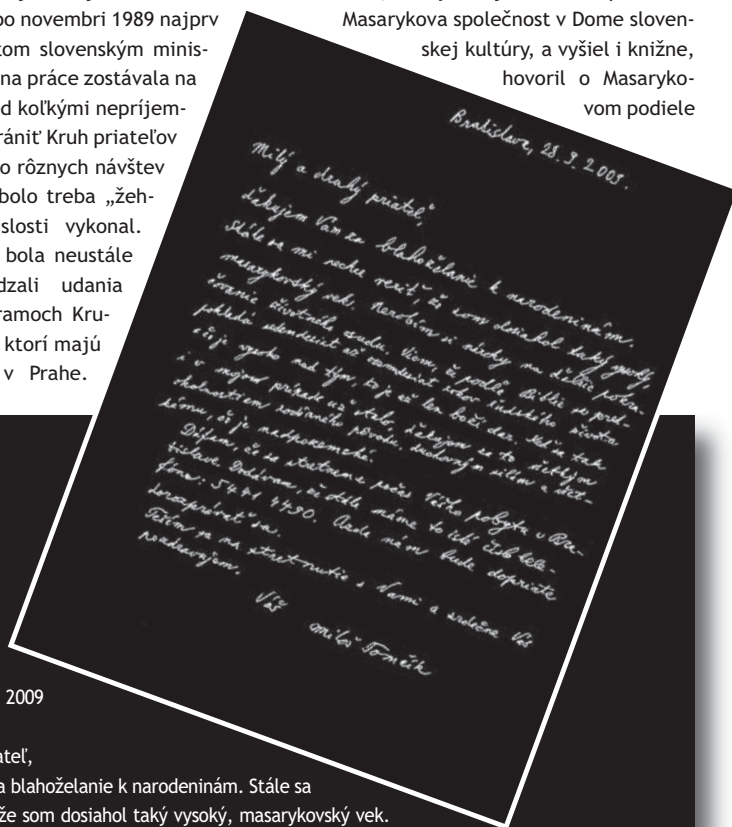 po novembri 1989 najprv
tom slovenským minis-
na práce zostávala na
d koľkými nepríjem-
rániť Kruh priateľov
o rôznych návštev
bolo treba „žeh-
slosti vykonal.
bola neustále
dzali udania
ramoch Kru-
ktorí majú
v Prahe.
Masarykova společnost v Dome sloven-
skej kultúry, a vyšiel i knižne,
hovoril o Masaryko-
vom podiele
Bratislava, 28. 3. 2009.
Milý a drahý priateľ,
ďakujem Vám za blahoželanie k narodeninám.
Stále sa mi nechce veriť, že som dosiahol taký vysoký
masarykovský vek. Nerobím si nároky na ďalšie pokra-
čovanie životného osudu. Viem, že podľa Biblie sa pred-
pokladá sedemdesiat až osemdesiat rokov ľudského života
a čo je vysoko nad tým, to je už len boží dar. Keď sa tak
i v mojom prípade už stalo, ďakujem za to všetkým
okolnostiam rodinného pôvodu, duchovným silám a všet-
kému, čo je nadpozemské.
Dúfam, že sa stretneme počas Vášho pobytu v Bra-
tislave. Dodávam, že stále máme to isté číslo tele-
fónu: 5441 4490. Rada nám bude dopriate
porozprávať sa.
Teším sa na stretnutie s Vami a srdečne Vás
pozdravujem.
Váš
Miloš Tomčík
2009
ateľ,
a blahoželanie k narodeninám. Stále sa
že som dosiahol taký vysoký, masarykovský vek.